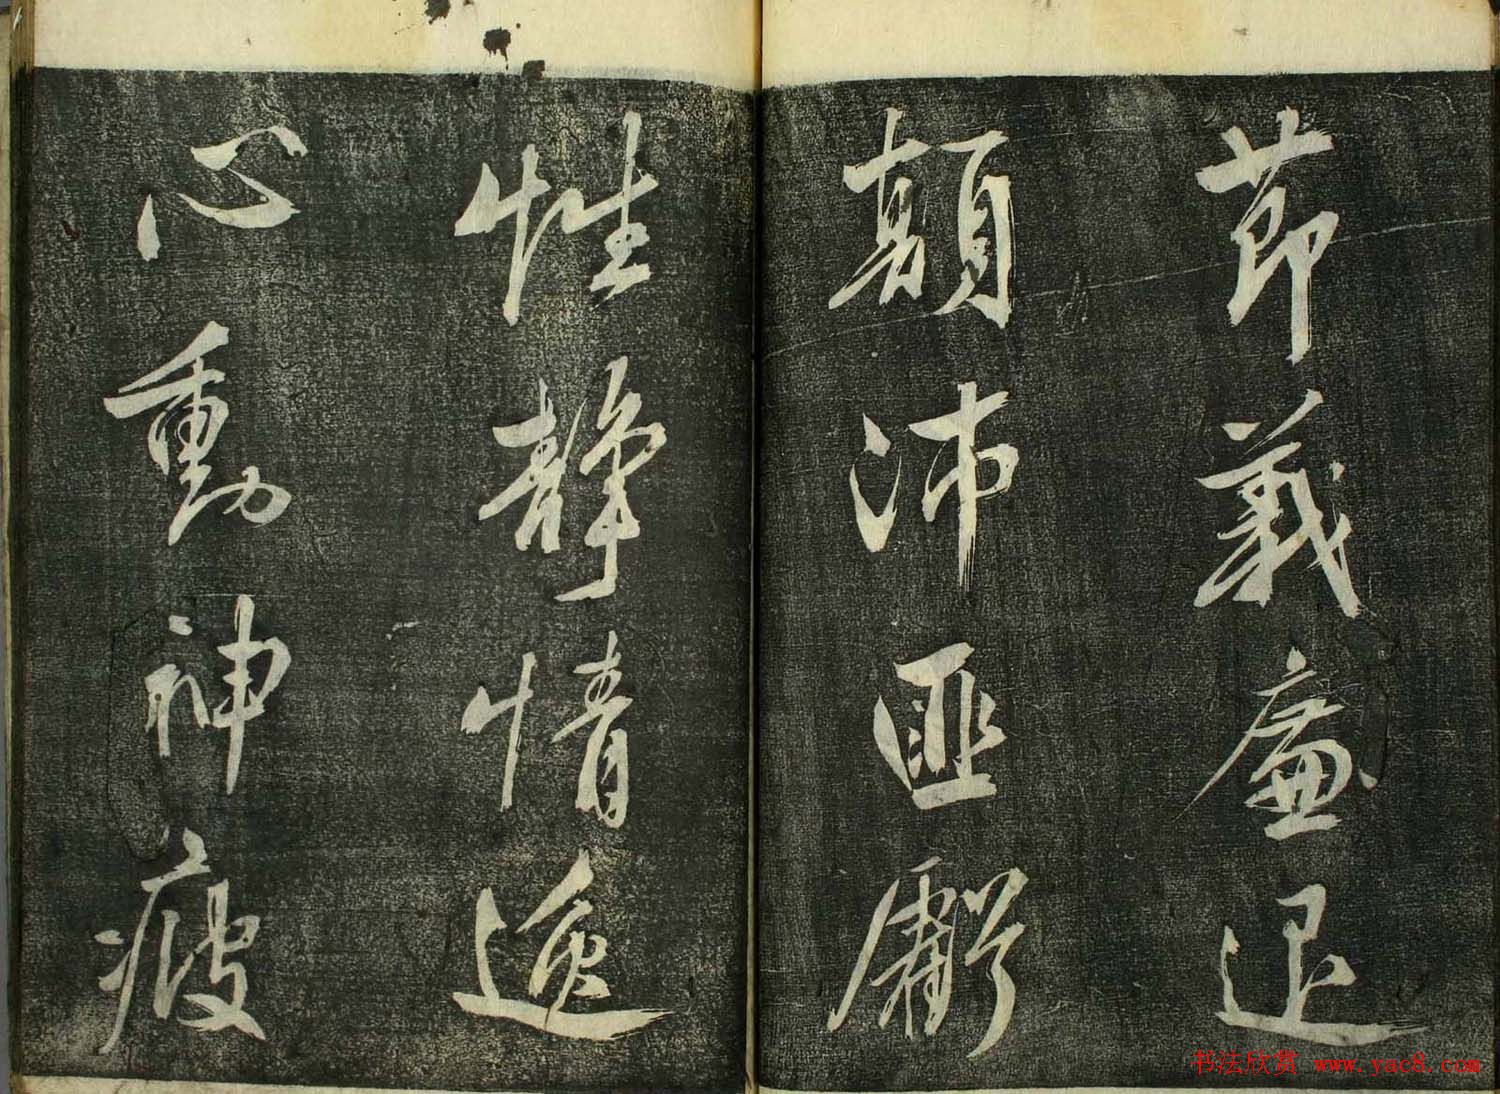 節義廉退
顛沛匪虧
性靜情逸
心動神疲
书法欣赏 www.yac8.com